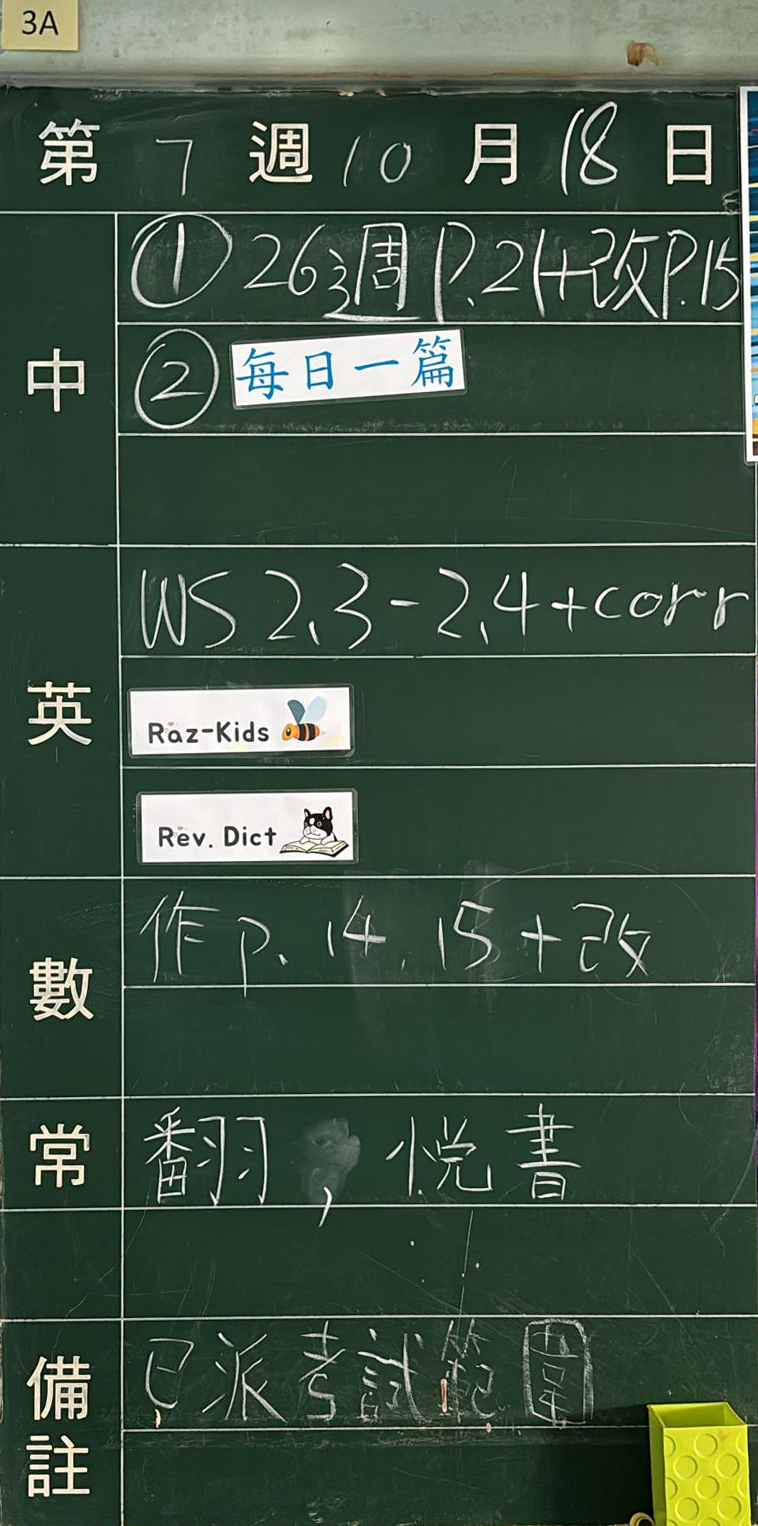 3A
第 7 週 10 月 18 日
中
① 26週 P.21+改P.15
② 每日一篇
英
WS 2.3-2.4+corr
Raz-Kids
Rev. Dict
數
作 P. 14, 15 + 改
常
翻 , 悅書
備註
已派考試範圍